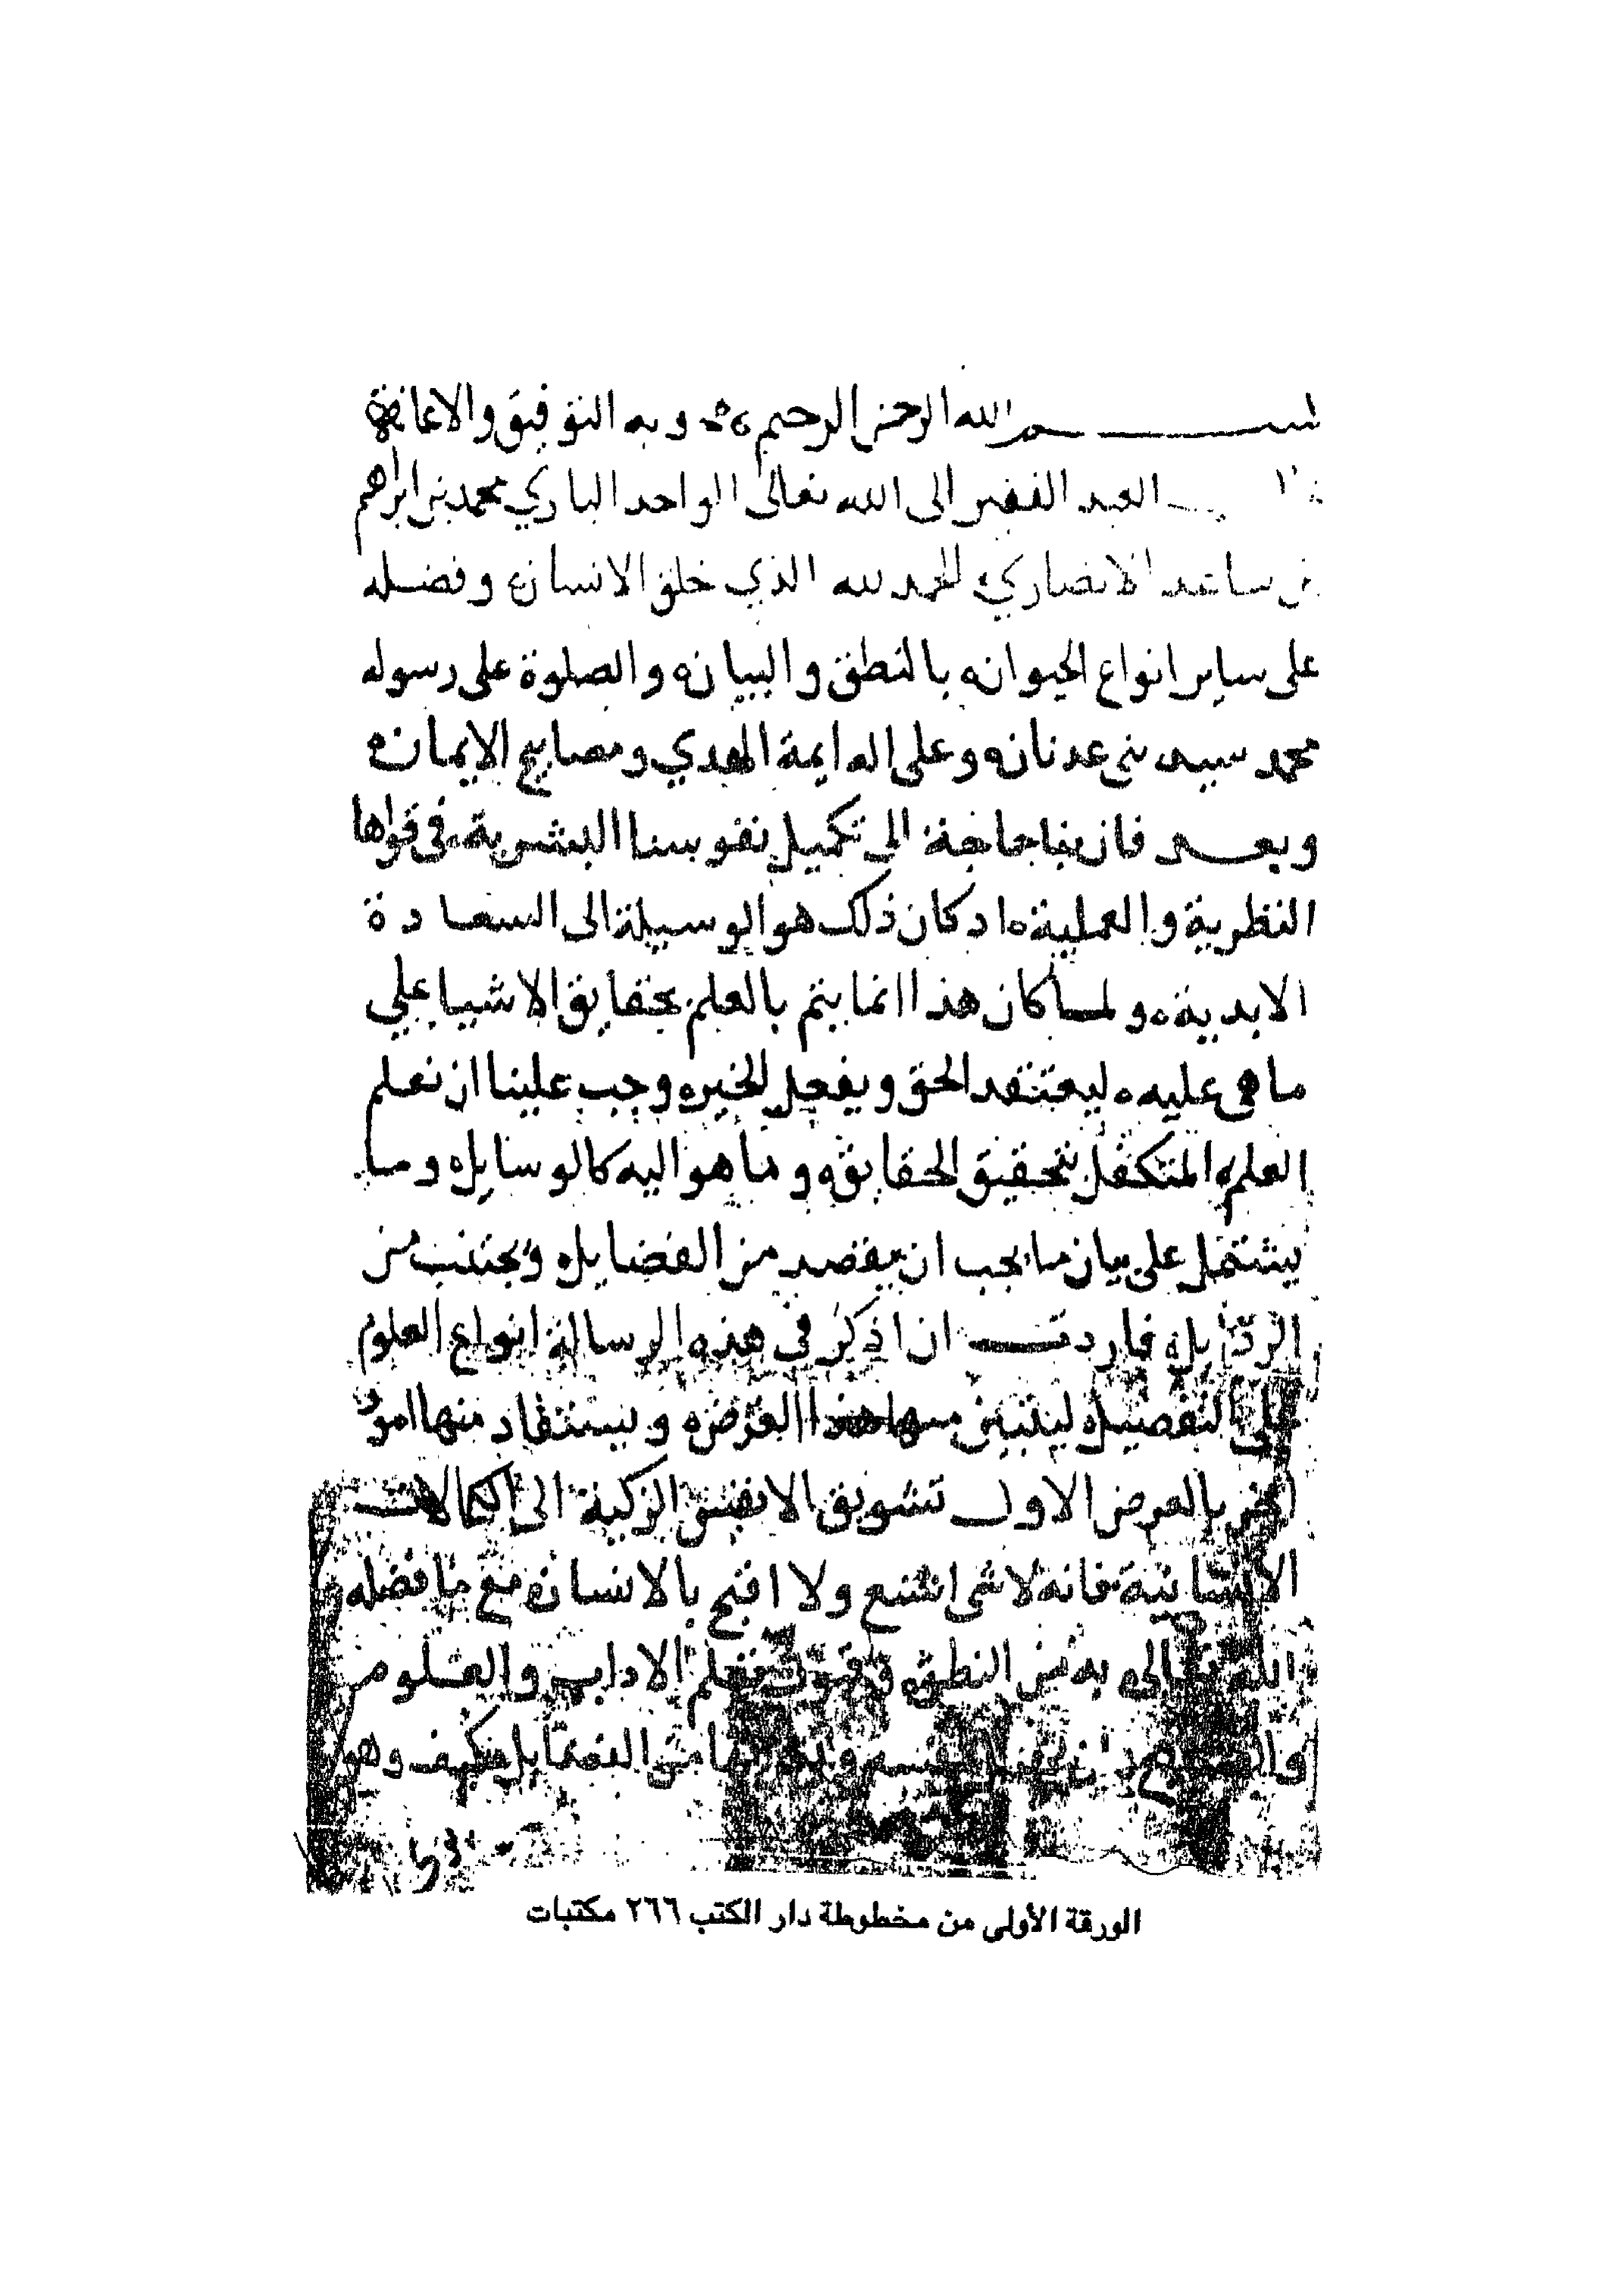 بسم الله الرحمن الرحيم وبه التوفيق والاعانة
العبد الفقير الى الله تعالى الواحد الباري محمد بن ابراهيم
بن ساعد الانصاري الحمد لله الذي خلق الانسان وفضله
على ساير انواع الحيوان بالنطق والبيان والصلوة على رسوله
محمد سيد بني عدنان وعلى اله ايمة الهدي ومصابيح الايمان
وبعد فان بنا حاجة الى تكميل نفوسنا البشرية في قواها
النظرية والعملية اد كان ذلك هو الوسيلة الى السعادة
الابدية ولما كان هذا انما يتم بالعلم بحقايق الاشيا علي
ما هي عليه ليعتقد الحق ويفعل الخير وجب علينا ان نعلم
العلم المتكفل بتحقيق الحقايق وما هو اليه كالوسايل وما
يشتمل على بيان ما يجب ان يقصد من الفضايل ويجتنب من
الرذايل فاردت ان اذكر في هذه الرسالة انواع العلوم
على التفصيل ليتبين منها هذا الغرض ويستفاد منها امور
اخر بالعرض الاول تشويق الانفس الزكية الى الكمالات
الانسانية فانه لا شي اشنع ولا اقبح بالانسان مع ما فضله
الله تعالى به من النطق وقبول تعلم الاداب والعلوم من
نفسه من الفضايل كيف وهو
الورقة الأولى من مخطوطة دار الكتب ٢٦٦ مكتبات